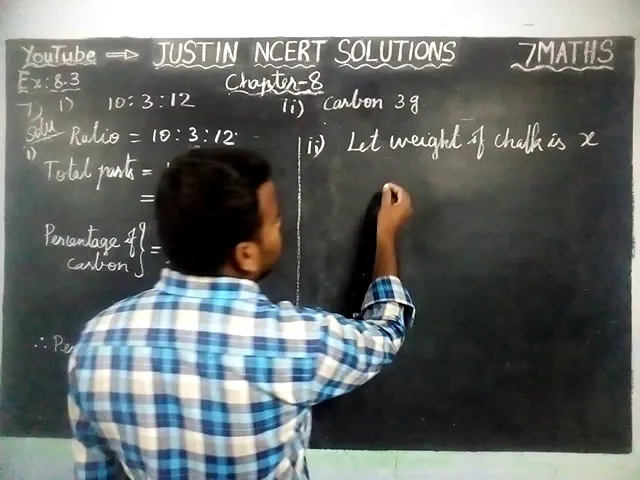 YouTube ⇒ JUSTIN NCERT SOLUTIONS 7MATHS
Ex: 8.3 Chapter-8
7) i) 10:3:12 ii) Carbon 3g
Solu
i) Ratio = 10:3:12
Total parts =
=
Percentage of
Carbon } =
∴ Pe
ii) Let weight of chalk is x